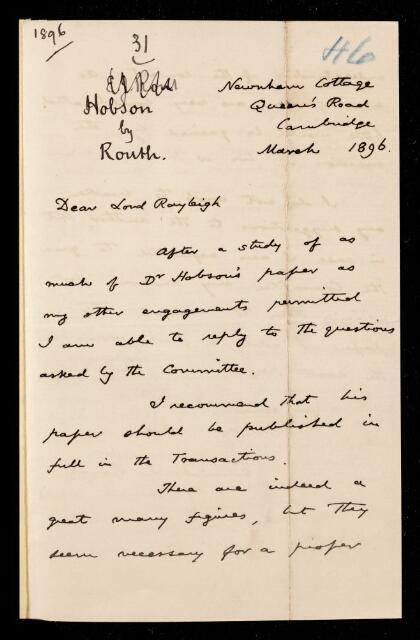 1896
31
46
Hobson
by
Routh.
Newnham Cottage
Queen's Road
Cambridge
March 1896.
Dear Lord Rayleigh
After a study of as
much of Dr Hobson's paper as
my other engagements permitted
I am able to reply to the questions
asked by the Committee.
I recommend that his
paper should be published in
full in the Transactions.
There are indeed a
great many figures, but they
seem necessary for a proper